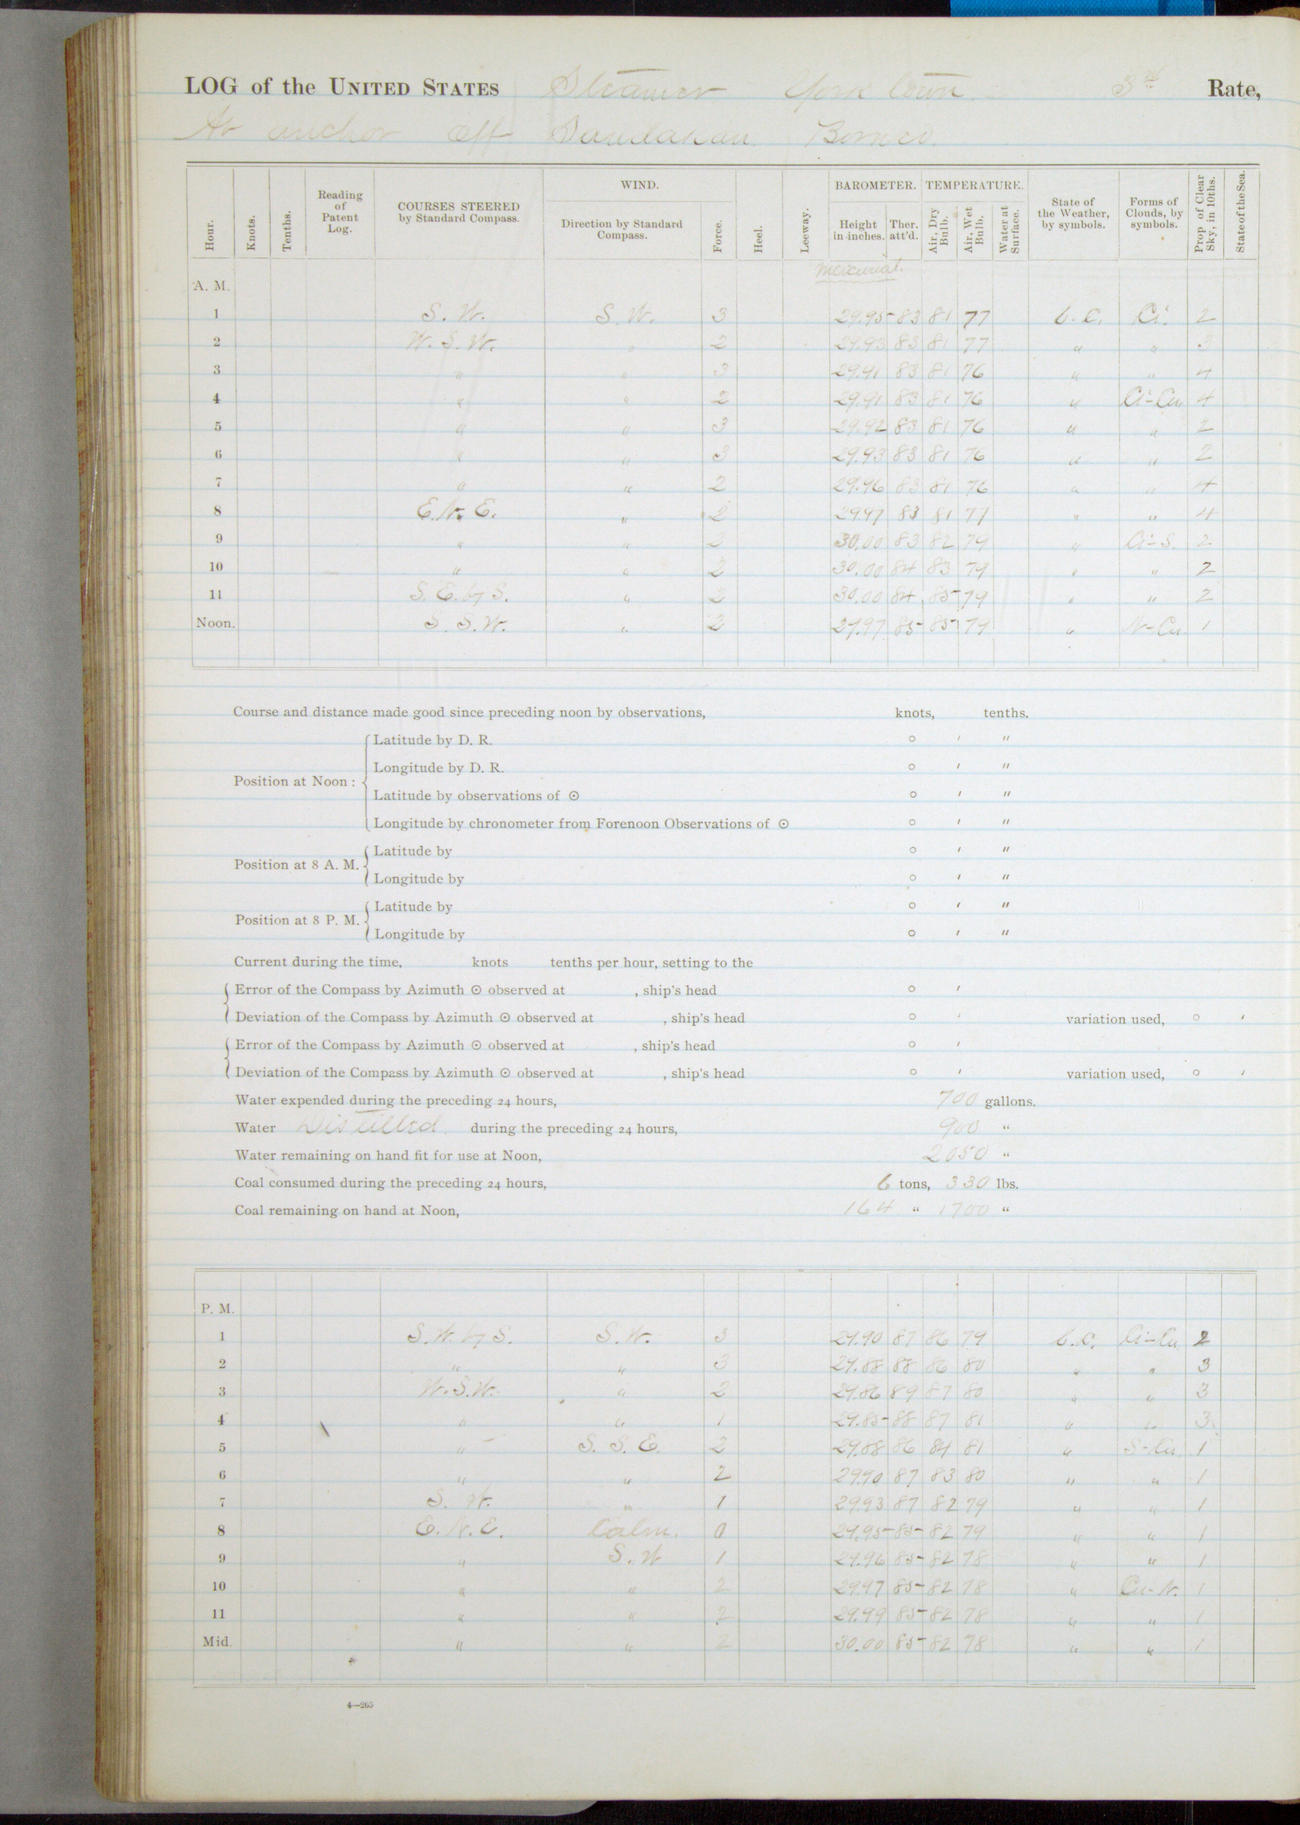 LOG of the UNITED STATES Steamer Yorktown 3rd Rate,
At anchor off Sandakan Borneo.
Hour. Knots. Tenths. Reading of Patent Log. COURSES STEERED by Standard Compass. WIND. Direction by Standard Compass. Force. Heel. Leeway. BAROMETER. Height in inches. Ther. att'd. TEMPERATURE. Air, Dry Bulb. Air, Wet Bulb. Water at Surface. State of the Weather, by symbols. Forms of Clouds, by symbols. Prop of Clear Sky, in 10ths. State of the Sea.
Mercurial.
A. M.
1 S. W. S. W. 3 29.95 83 81 77 b.c. Ci. 2
2 W. S. W. " 2 29.93 83 81 77 " " 3
3 " " 3 29.91 83 81 76 " " 4
4 " " 2 29.91 83 81 76 " Ci-Cu. 4
5 " " 3 29.92 83 81 76 " " 2
6 " " 3 29.93 83 81 76 " " 2
7 " " 2 29.96 83 81 76 " " 4
8 E.N.E. " 2 29.97 83 81 77 " " 4
9 " " 2 30.00 83 82 79 " Ci-S. 2
10 " " 2 30.00 84 83 79 " " 2
11 S.E. by S. " 2 30.00 84 85 79 " " 2
Noon. S. S. W. " 2 29.97 85 85 79 " N-Cu 1
Course and distance made good since preceding noon by observations, knots, tenths.
Position at Noon :
Latitude by D. R. ° ′ ″
Longitude by D. R. ° ′ ″
Latitude by observations of ⊙ ° ′ ″
Longitude by chronometer from Forenoon Observations of ⊙ ° ′ ″
Position at 8 A. M.
Latitude by ° ′ ″
Longitude by ° ′ ″
Position at 8 P. M.
Latitude by ° ′ ″
Longitude by ° ′ ″
Current during the time, knots tenths per hour, setting to the
Error of the Compass by Azimuth ⊙ observed at , ship's head ° ′
Deviation of the Compass by Azimuth ⊙ observed at , ship's head ° ′ variation used, ° ′
Error of the Compass by Azimuth ⊙ observed at , ship's head ° ′
Deviation of the Compass by Azimuth ⊙ observed at , ship's head ° ′ variation used, ° ′
Water expended during the preceding 24 hours, 700 gallons.
Water Distilled during the preceding 24 hours, 900 "
Water remaining on hand fit for use at Noon, 2050 "
Coal consumed during the preceding 24 hours, 6 tons, 330 lbs.
Coal remaining on hand at Noon, 164 " 1700 "
P. M.
1 S.W. by S. S. W. 3 29.90 87 86 79 b.c. Ci-Cu 2
2 " " 3 29.88 88 86 80 " " 3
3 W.S.W. " 2 29.86 89 87 80 " " 3
4 " " 1 29.85 88 87 81 " " 3
5 " S. S. E. 2 29.88 86 84 81 " S-Cu. 1
6 " " 2 29.90 87 83 80 " " 1
7 S. W. " 1 29.93 87 82 79 " " 1
8 E. N. E. Calm. 0 29.95 85 82 79 " " 1
9 " S. W 1 29.96 85 82 78 " " 1
10 " " 2 29.97 85 82 78 " Cu-N. 1
11 " " 2 29.99 85 82 78 " " 1
Mid. " " 2 30.00 85 82 78 " " 1
4—265